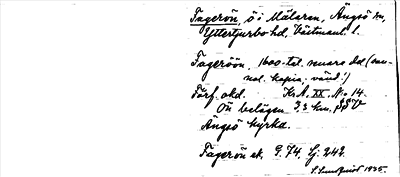 Fagerön, ö i Mälaren, Ängsö sn,
Yttertjurbo hd, Västmanl. l.
Fageröön, 1600-tal. senare del (
nol. kopia, vänd!)
Förf. okd. K. A. XX. No 14.
Ön belägen 3,3 km. SSV
Ängsö kyrka.
Fagerön ek. G. 74, Lj. 242.
S. Sundqvist 1935.